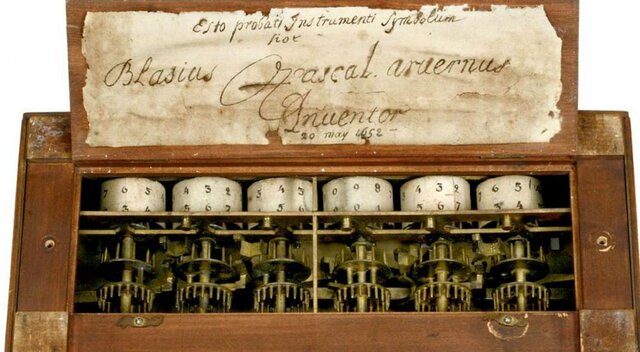 Esto probati Instrumenti Symbolum
hoc
Blasius Pascal. aruernus
Inventor
20 may 1652
7 6 5 4 3 2 5 4 3 0 9 8 4 3 2 7 6 5